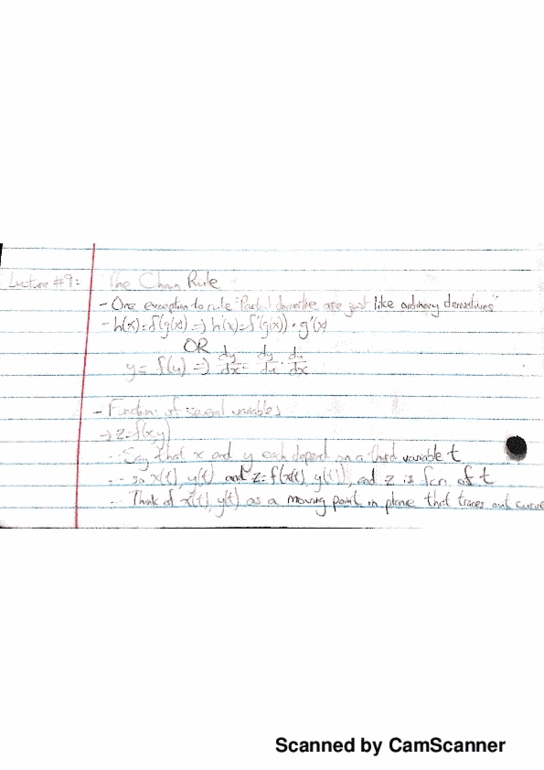 Lecture #9: The Chain Rule
- One exception to rule "Partial derivative are just like ordinary derivatives"
- h(x)=f(g(x)) => h'(x)=f'(g(x)) • g'(x)
OR
y= f(u) => dy/dx = dy/du · du/dx
- Function of several variables
-> z=f(x,y)
-- Say that x and y each depend on a third variable t
-- so x(t), y(t) and z=f(x(t), y(t)), and z is fcn of t
-- Think of x(t), y(t) as a moving point in plane that traces out curve
Scanned by CamScanner